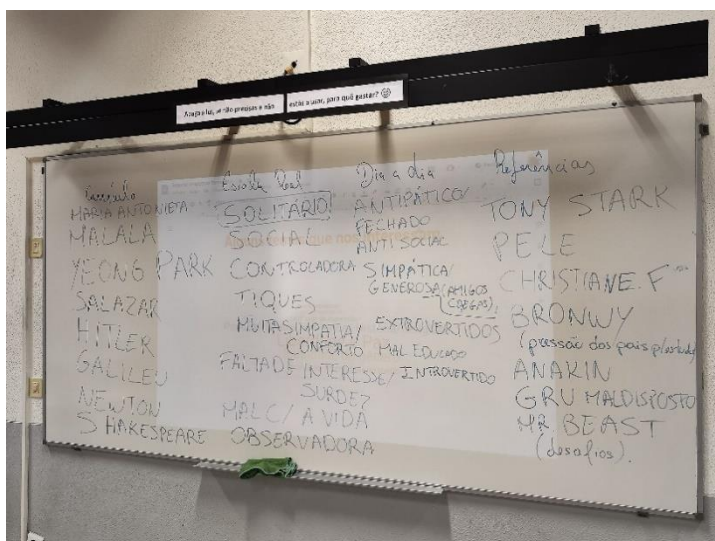 Apaga a luz, se não precisas e não estás a usar, para quê gastar?
Currículo
MARIA ANTONIETA
MALALA
YEONG PARK
SALAZAR
HITLER
GALILEU
NEWTON
SHAKESPEARE
Escola Real
SOLITÁRIO
SOCIAL
CONTROLADORA
TIQUES
MUITA SIMPATIA/
CONFORTO
FALTA DE INTERESSE/
SURDEZ
MAL C/ A VIDA
OBSERVADORA
Dia a dia
ANTIPÁTICO/
FECHADO
ANTI SOCIAL
SIMPÁTICA/
GENEROSA (AMIGOS
COEGAS)
EXTROVERTIDOS
MAL EDUCADO
INTROVERTIDO
Referências
TONY STARK
PELE
CHRISTIANE. F
BRONWY
(pressão dos pais p/
ANAKIN
GRU MALDISPOSTO
MR BEAST
(desafios).